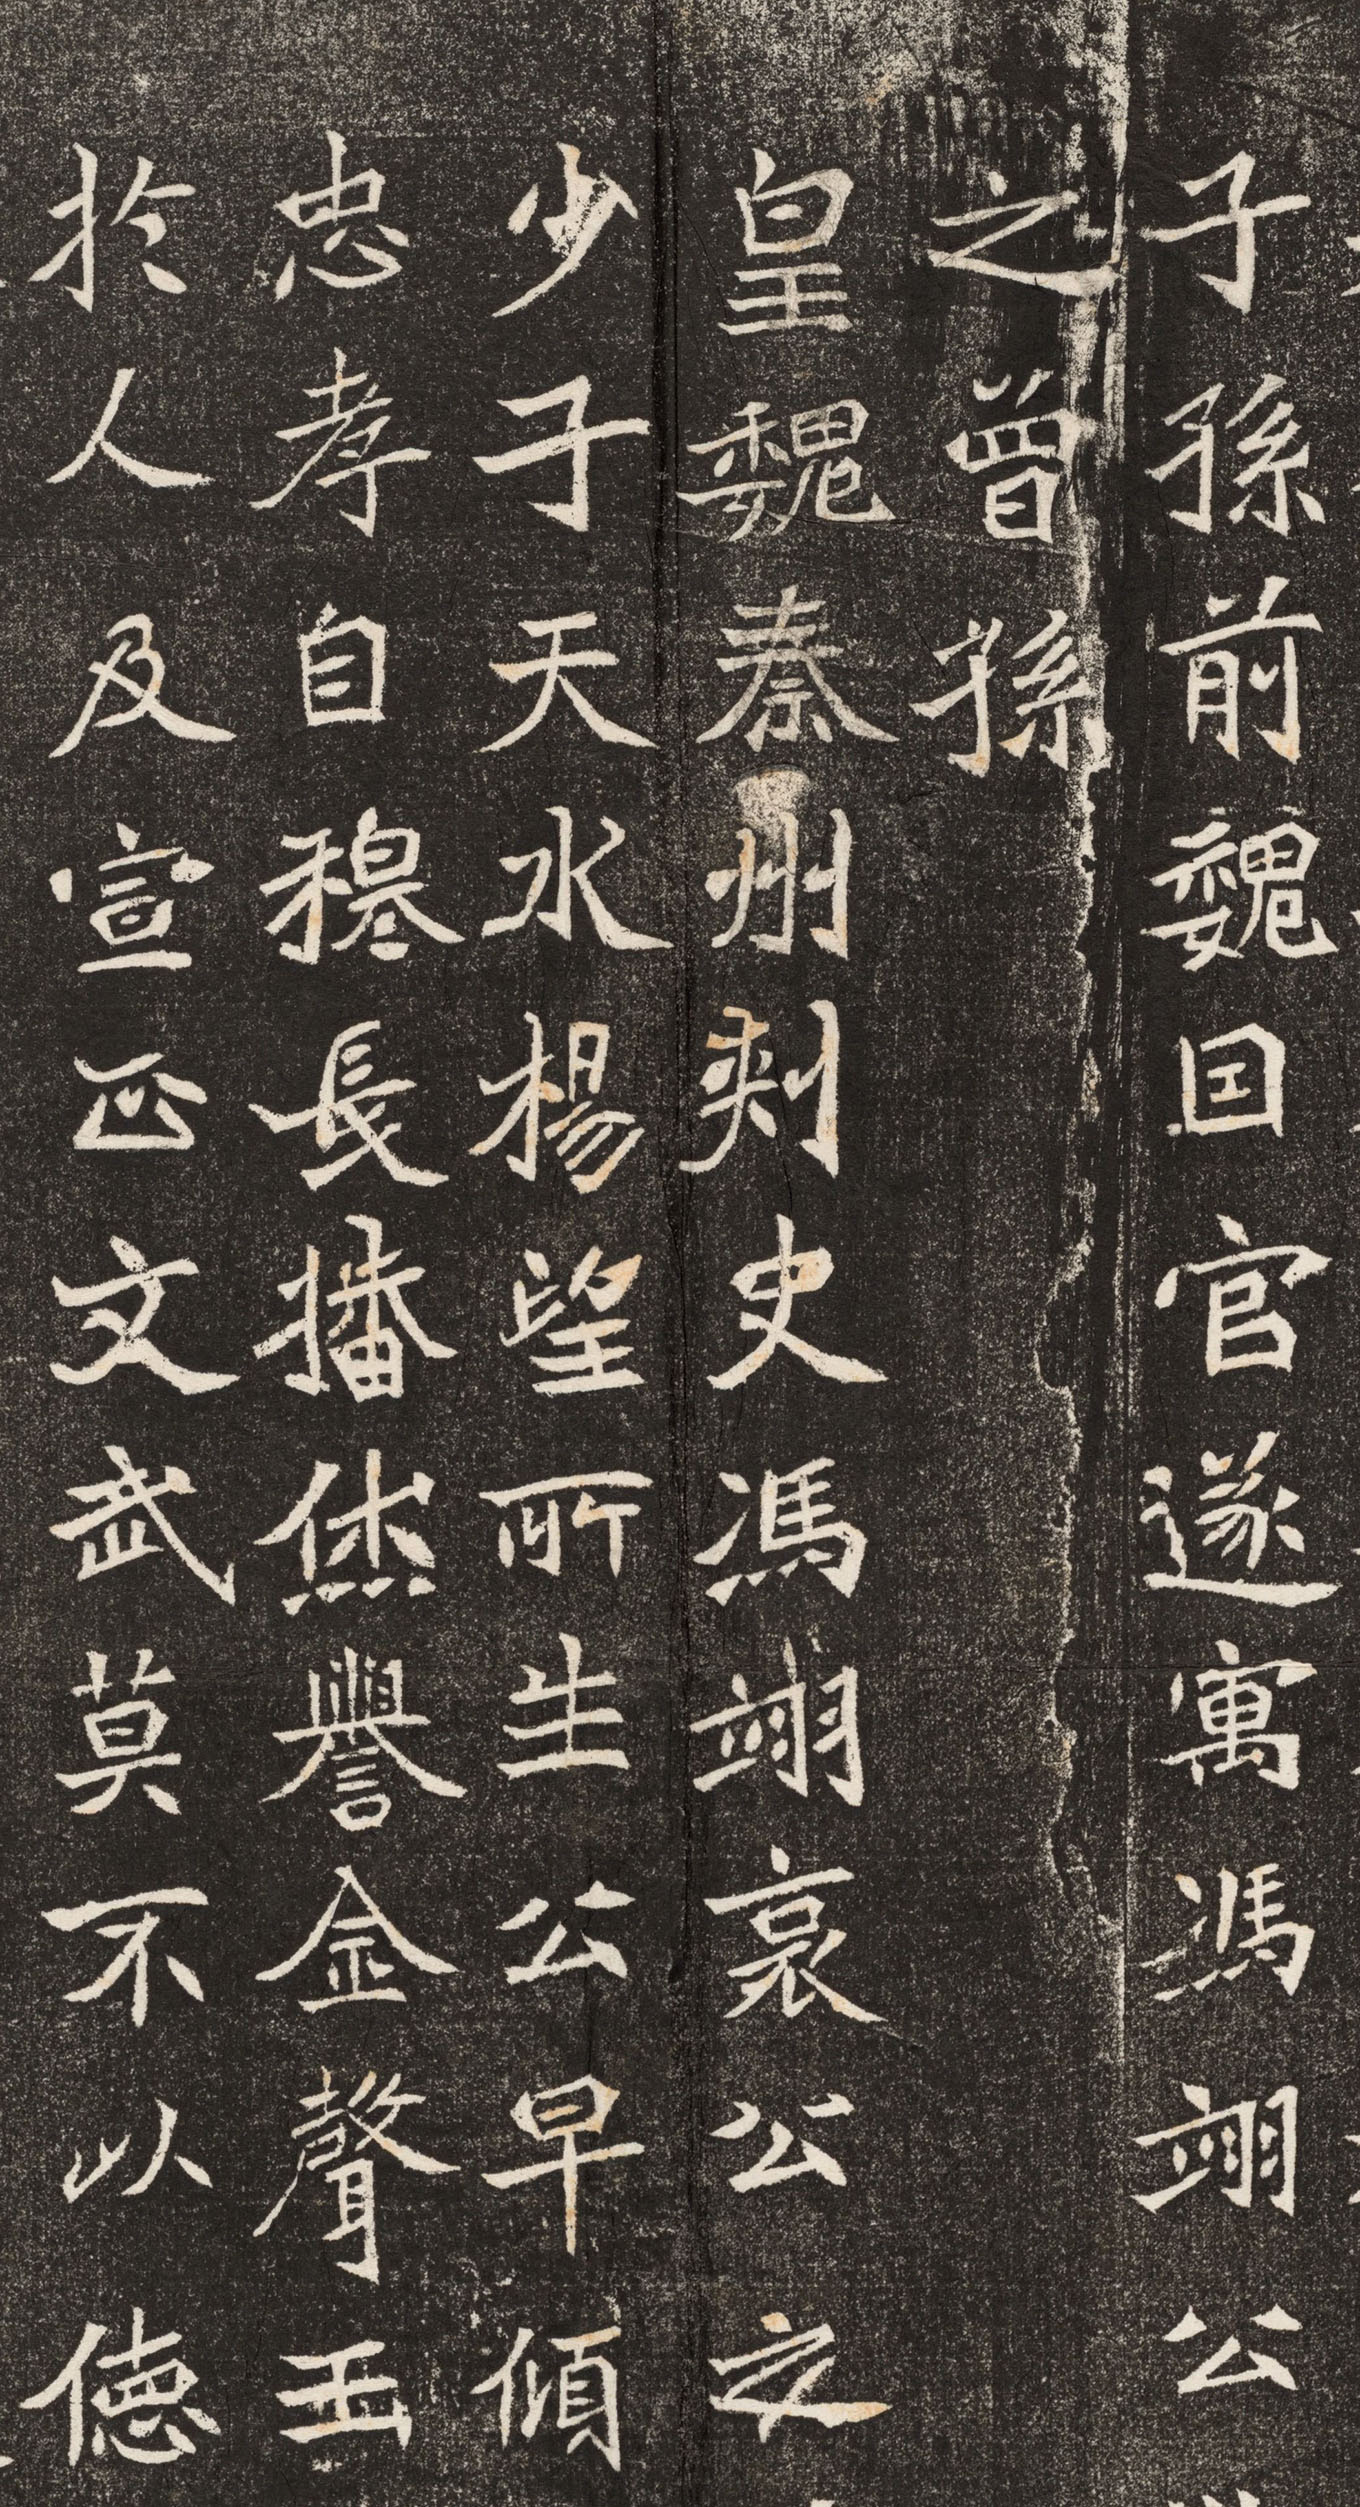 子孫前魏国官遂寓馮翊公
之曾孫
皇魏秦州刺史馮翊哀公之
少子天水楊望所生公早傾
忠孝自穆長播烋譽金聲玉
於人及宣正文武莫不以德